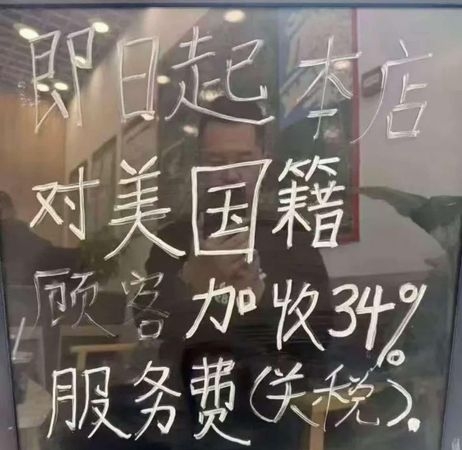 即日起本店
对美国籍
顾客加收34%
服务费(关税).